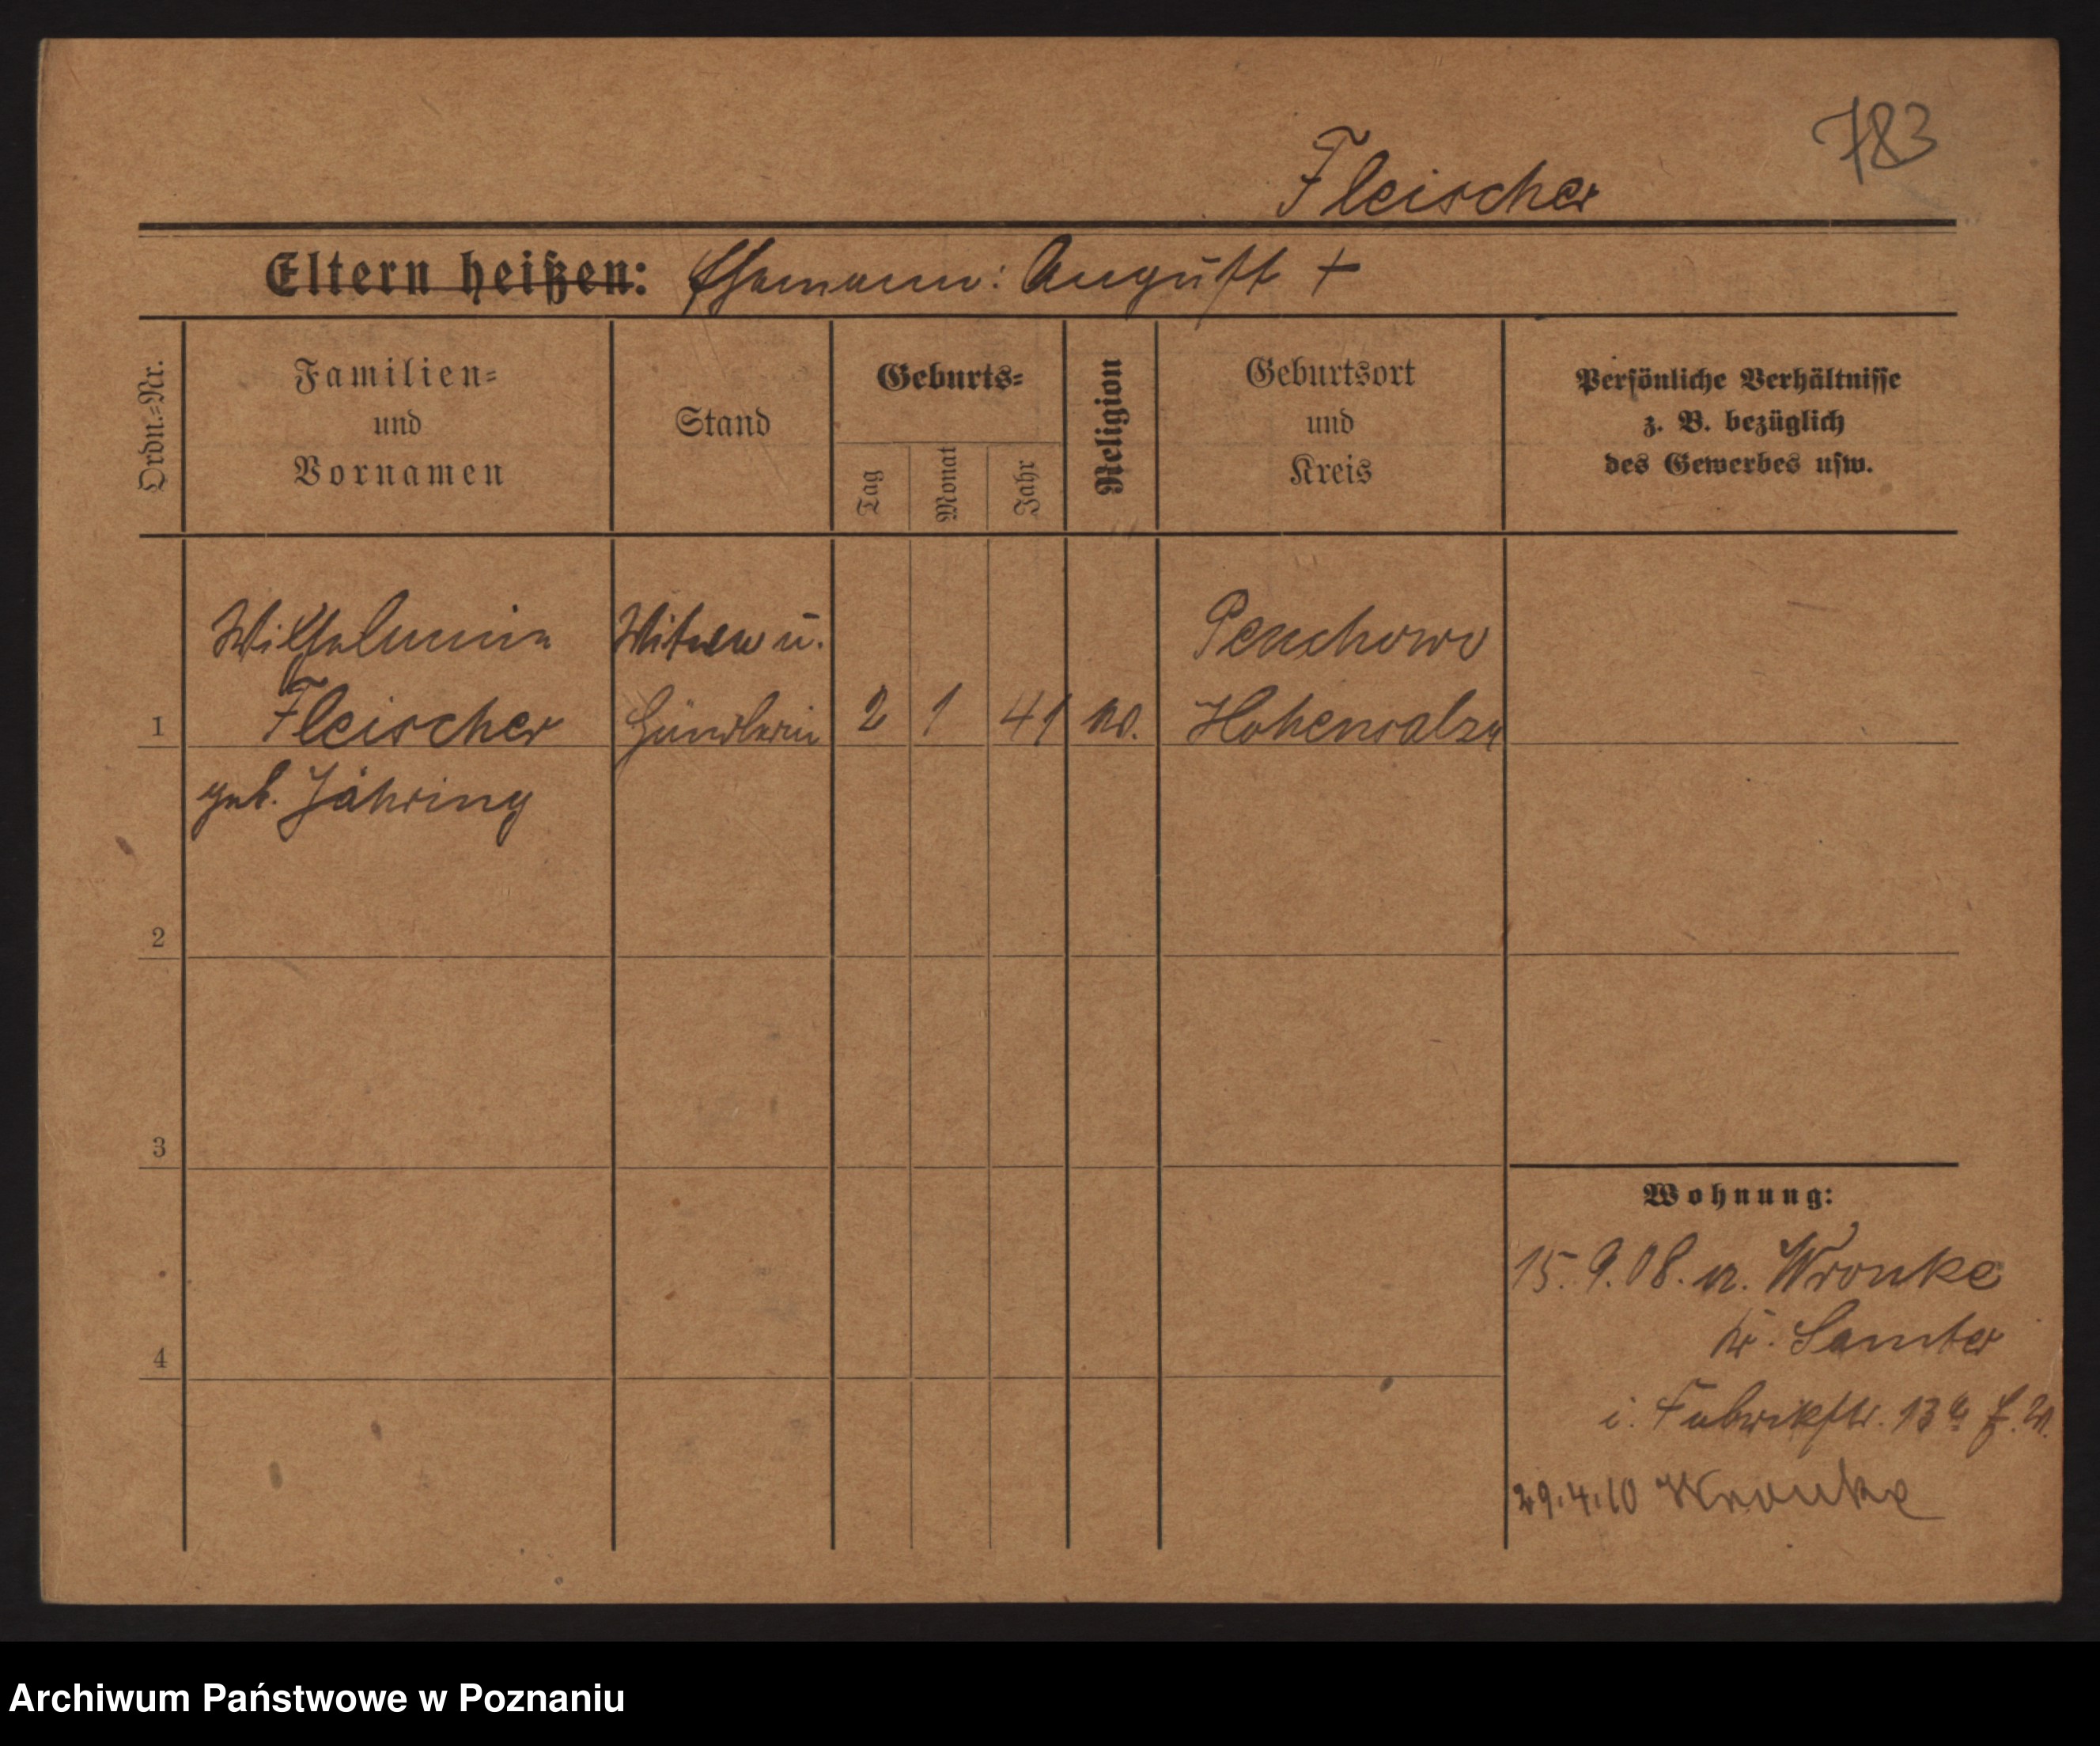 783
Fleischer
Eltern heißen: Ehemann: August +
Ordn.=Nr.
Familien=
und
Vornamen
Stand
Geburts=
Tag
Monat
Jahr
Religion
Geburtsort
und
Kreis
Persönliche Verhältnisse
z. B. bezüglich
des Gewerbes usw.
Wilhelmine Witwe u.
1 Fleischer Händlerin 2 1 41 Hohensalza
geb. Jähring
2
3
4
Wohnung:
15.9.08. n. Wronke
Kr. Samter
i. Fabrikstr. 13
29.4.10 Wronke
Archiwum Państwowe w Poznaniu